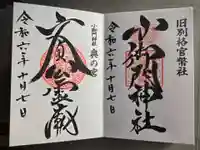 旧別格官幣社
小御門神社
令和六年十月七日
小御門神社 奥の宮
文貞公
令和六年十月七日